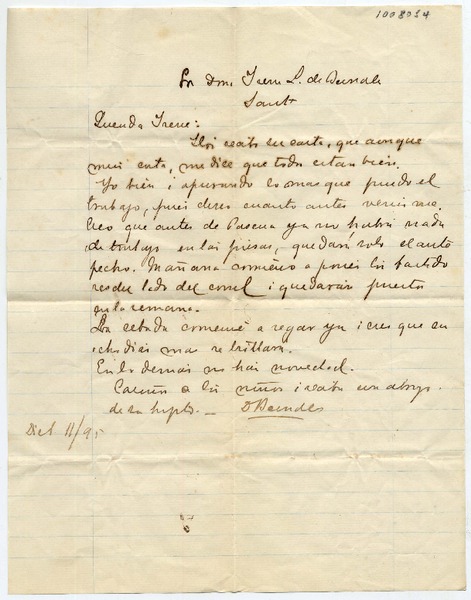 1008054
Sra Dna Irene L. de
Sant.
Querida Irene:
Hoi recibo su carta, que aunque
mui corta, me dice que todos estan bien.
Yo bien i apurando lo mas que puedo el
trabajo, pues deseo cuanto antes
Creo que antes de Pascua ya no habrá nada
de trabajo en las presas, quedará solo el ante
pecho. Mañana comienzo a poner los
del lado del i quedarán puestos
en la semana.
La cebada comencé a regar ya i creo que en
ocho dias mas
En lo demas no hai novedad.
Cariños a los niños i reciba un abrazo
de su
Dic. 11/95